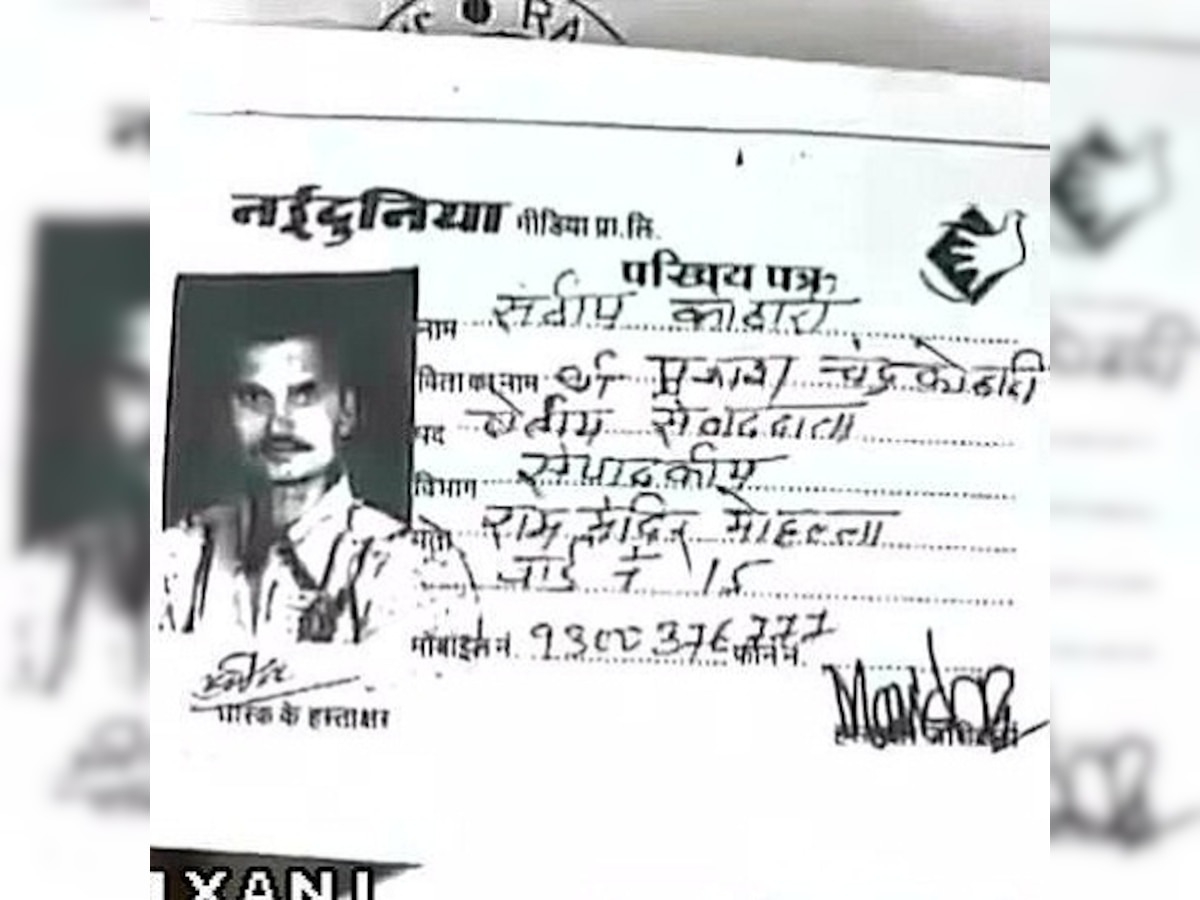 RA
नईदुनिया मीडिया प्रा.लि.
परिचय पत्र
नाम संदीप कोठारी
पिता का नाम श्री प्रकाश चंद्र कोठारी
पद क्षेत्रीय संवाददाता
विभाग संपादकीय
पता राम मंदिर मोहल्ला
वार्ड नं 15
मोबाईल नं. 9300376777 फोन नं.
धारक के हस्ताक्षर